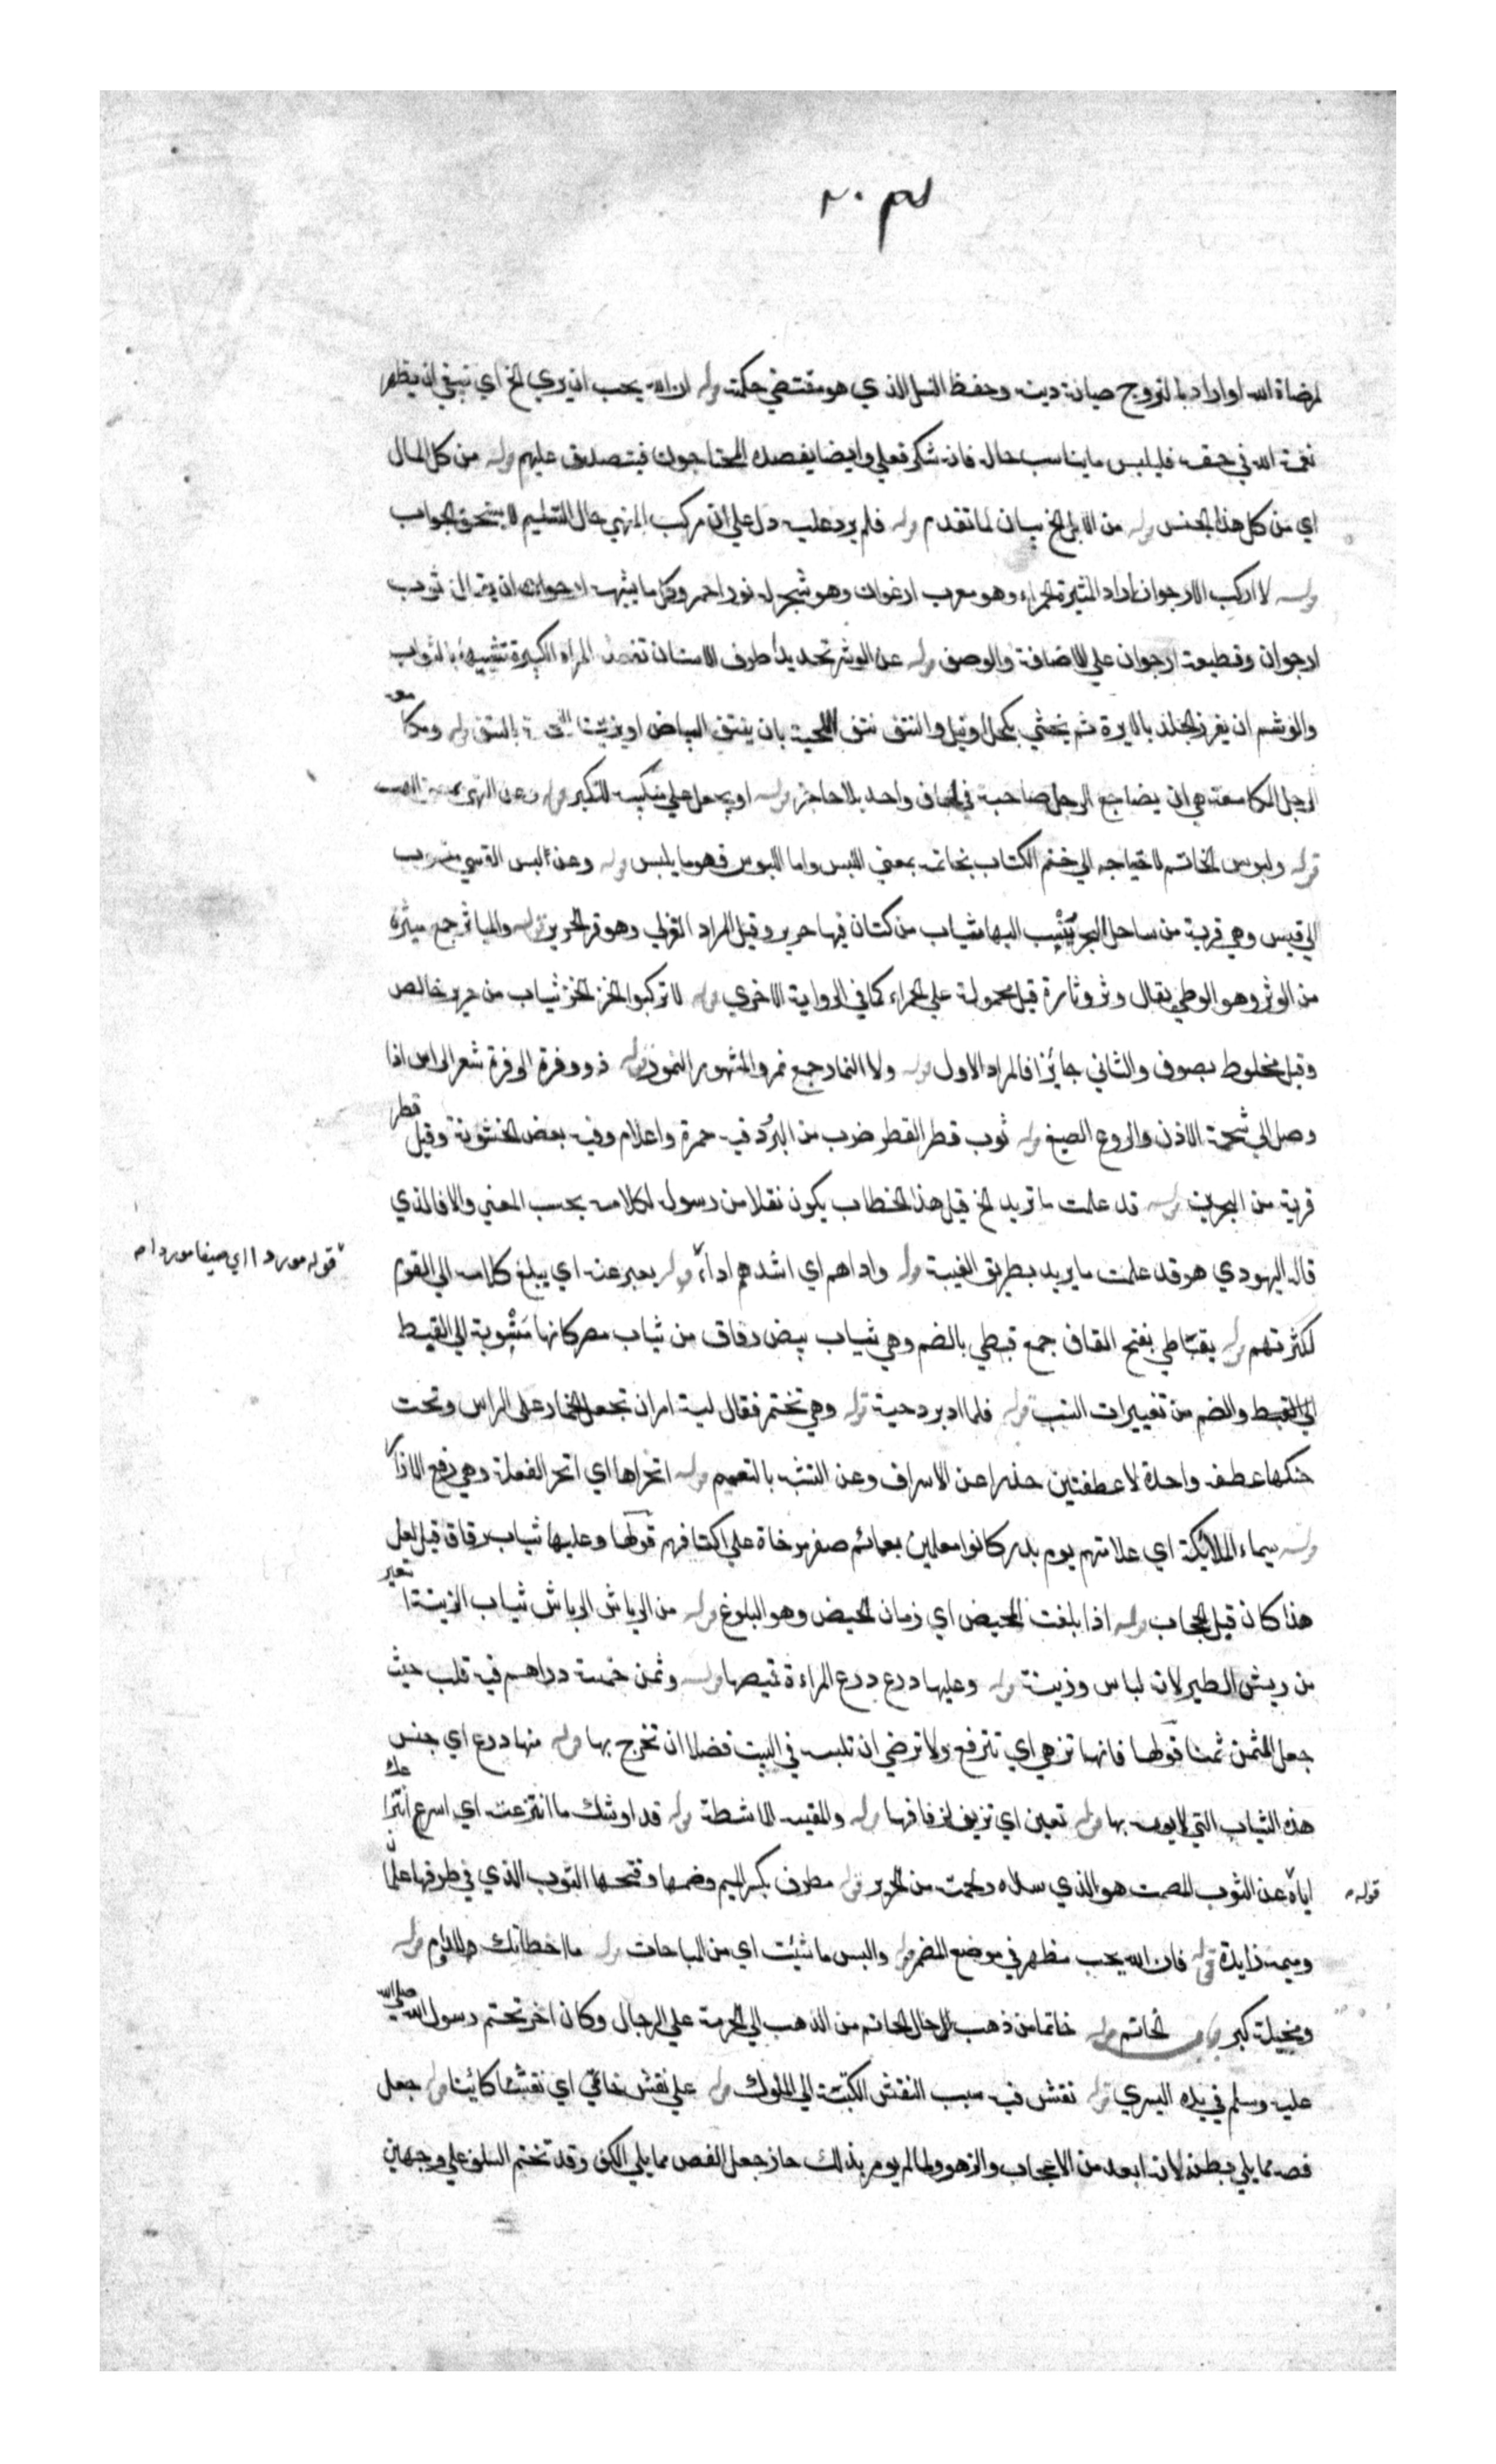 لمرضاة الله او اراد بالتزوج صيانة دينه وحفظ النسل الذي هو مقتضي حكمته قوله ان الله يحب ان يري الخ اي ينبغي ان يظهر
نعمة الله في حقه فليلبس ما يناسب حاله فانه شكر فعلي وايضا يقصده المحتاجون فيتصدق عليهم قوله من كل المال
اي من كل هذا الجنس قوله من الابل الخ بيان لما تقدم قوله فلم يرد عليه دل علي ان مرتكب المنهي حال التسليم لا يستحق الجواب
قوله لا اركب الارجوان اراد الميثرة الحمراء وهو معرب ارغوان وهو شجر له نور احمر وكل ما يشبهه ارجوان ان يقال ثوب
ارجوان وقطيعة ارجوان علي الاضافة والوصف قوله عن الوشر تحديد اطراف الاسنان تفعله المراة الكبيرة تشبيها بالشواب
والوشم ان يغرز الجلد بالابرة ثم يحشي بكحل او نيل والنتف نتف اللحية بان ينتف البياض او يزينتها بالنتف قوله ومكامعة
الرجل المكامعة هي ان يضاجع الرجل صاحبه في لحاف واحد بلا حاجز قوله او يجعل علي منكبيه للتكبر قوله وعن النهبي
قوله ولبوس الخاتم لاحتياجه الي ختم الكتاب بخاتمه بمعني اللبس واما اللبوس فهو ما يلبس قوله وعن لبس القسي منسوب
الي قيس وهي قرية من ساحل البحر ينسب اليها ثياب من كتان فيها حرير وقيل المراد القزي وهو قز الحرير قوله والمياثر جمع ميثرة
من الوثر وهو الوطي يقال وثر وثارة قيل محمولة علي الحمراء كما في الرواية الاخري قوله لا تركبوا الخز الخز ثياب من حرير خالص
وقيل مخلوط بصوف والثاني جائز فالمراد الاول قوله ولا النمار جمع نمر والمشهور النمور قوله ذو وفرة الوفرة شعر الراس اذا
وصل الي شحمة الاذن والردع الصبغ قوله ثوب قطر القطر ضرب من البُرد فيه حمرة واعلام وفيه بعض الخشونة وقيل قطر
قرية من البحرين قوله قد علمت ما تريد الخ قيل هذا الخطاب يكون نقلا من رسوله لكلامه بحسب المعني والا فالذي
قاله اليهودي هو قد علمت ما يريد بطريق الغيبة قوله واداهم اي اشدهم اداءً قوله يعبر عنه اي يبلغ كلامه الي القوم
لكثرتهم قوله بقباطي بفتح القاف جمع قبطي بالضم وهي ثياب بيض دقاق من ثياب مصر كانها منسوبة الي القبط
الي القبط والضم من تغييرات النسب قوله فلما ادبر دحية قوله وهي تختمر فقال لية امر ان تجعل الخمار علي الراس وتحت
حنكها عطفة واحدة لا عطفتين حذرا عن الاسراف وعن التشبه بالتعميم قوله اتحراها اي اتحر الفعلة وهي رفع الازار
قوله سيماء الملائكة اي علامتهم يوم بدر كانوا معلمين بعمائم صفر مرخاة علي اكتافهم قولها وعليها ثياب رقاق قيل لعل
هذا كان قبل الحجاب قوله اذا بلغت المحيض اي زمان الحيض وهو البلوغ قوله من الرياش الرياش ثياب الزينة استعير
من ريش الطير لانه لباس وزينة قوله وعليها درع درع المراءة قميصها قوله وثمن خمسة دراهم فيه قلب حيث
جعل المثمن ثمنا قولها فانها تزهي اي تترفع ولا ترضي ان تلبسه في البيت فضلا ان تخرج بها قوله منها درع اي جنس
هذه الثياب التي لا يوبه بها قوله تعين اي تزين لزفافها قوله والمقينة الماشطة قوله قد اوشك ما انتزعته اي اسرع انتزاعك
اياه عن الثوب المصمت هو الذي سداه ولحمته من الحرير قوله مطرف بكسر الميم وضمها وفتحها الثوب الذي في طرفها علمان
وميمه زايدة قوله فان الله يحب مظهر في موضع المضمر قوله والبس ما شئت اي من المباحات قوله ما اخطاتك قوله
ومخيلة كبر باب الخاتم قوله خاتما من ذهب للرجال الخاتم من الذهب الي الحرمة علي الرجال وكان اخر تختم رسول الله صلي الله
عليه وسلم في يده اليسري قوله نقش فيه سبب النقش الكتبة الي الملوك قوله علي نقش خاتمي اي نقشا كائنا قوله جعل
فصه مما يلي بطنه لانه ابعد من الاعجاب والزهو ولما لم يومر بذلك جاز جعل الفص مما يلي الكف وقد تختم السلف علي وجهين
قوله موردا اي صبغا موردا
قوله